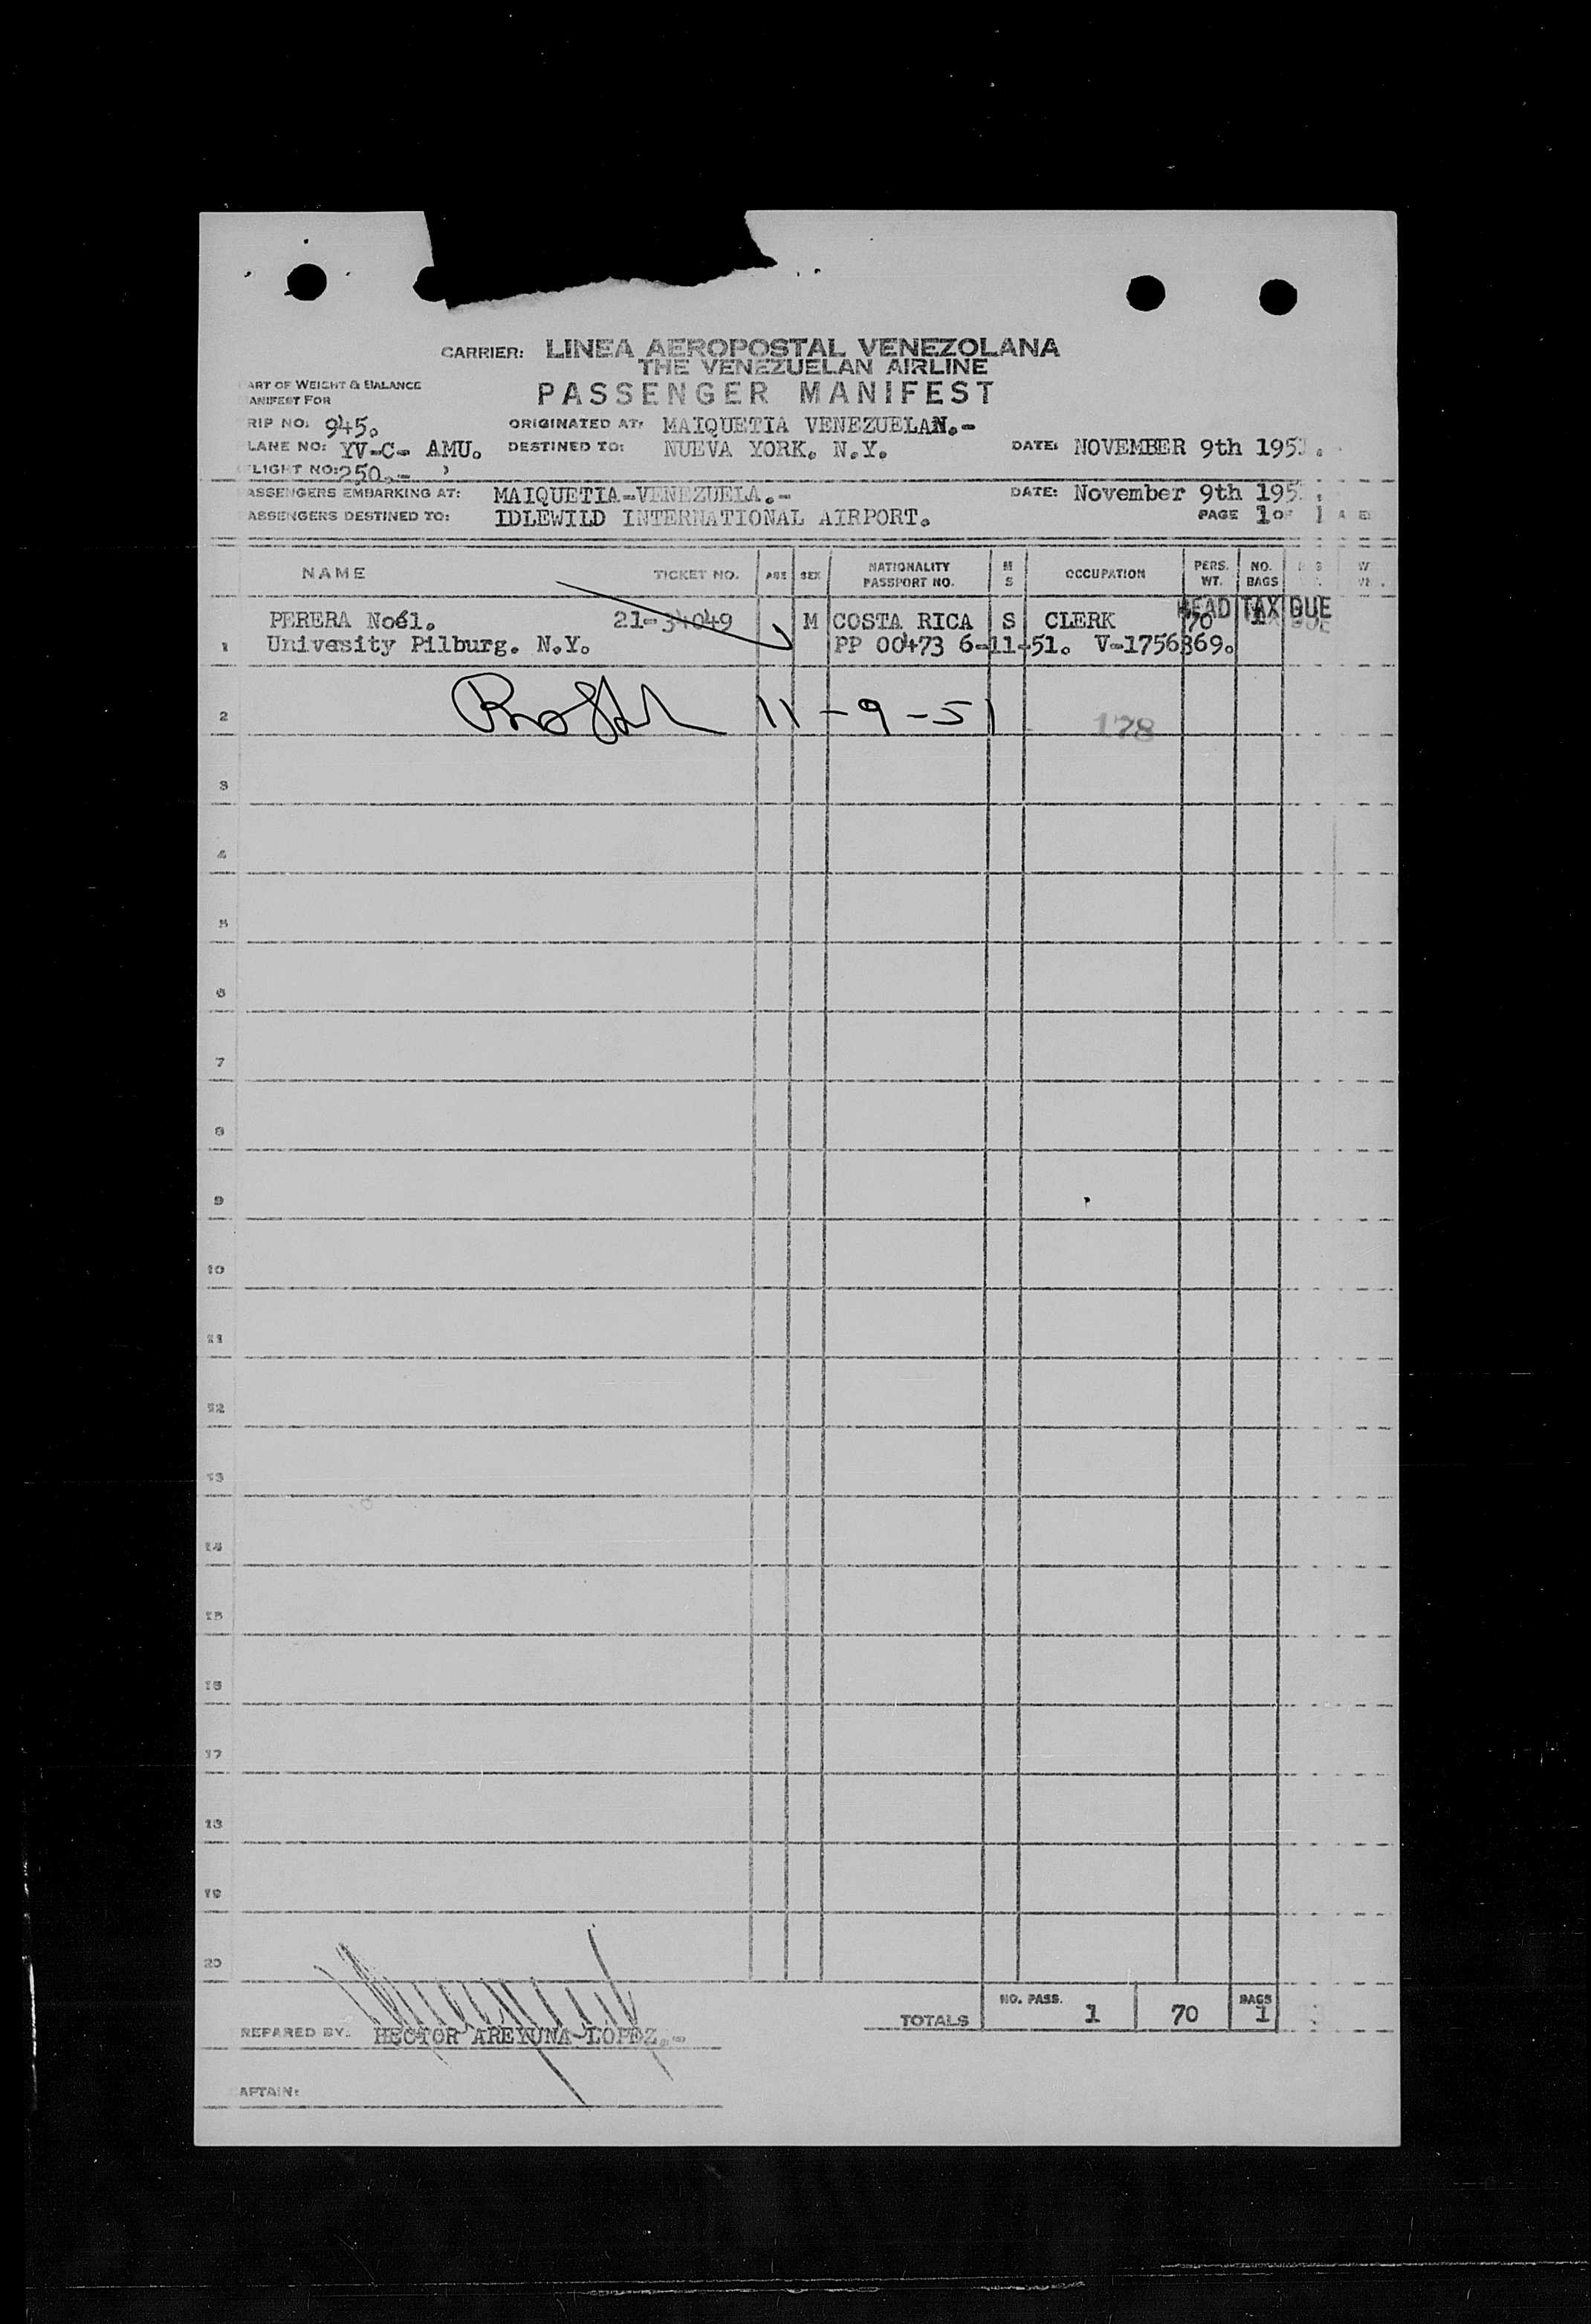 CARRIER: LINEA AEROPOSTAL VENEZOLANA
THE VENEZUELAN AIRLINE
ART OF WEIGHT & BALANCE
ANIFEST FOR
PASSENGER MANIFEST
RIP NO: 945. ORIGINATED AT: MAIQUETIA VENEZUELAN.-
LANE NO: YV-C- AMU. DESTINED TO: NUEVA YORK. N.Y. DATE: NOVEMBER 9th 195
FLIGHT NO: 250.-
ASSENGERS EMBARKING AT: MAIQUETIA-VENEZUELA.- DATE: November 9th 195
ASSENGERS DESTINED TO: IDLEWILD INTERNATIONAL AIRPORT. PAGE 1 OF 1
NAME TICKET NO. AGE SEX NATIONALITY PASSPORT NO. M S OCCUPATION PERS. WT. NO. BAGS
HEAD TAX DUE
PERERA Noél. 21-34049 M COSTA RICA S CLERK 70 1
1 Univesity Pilburg. N.Y. PP 00473 6-11-51. V-1756869.
2 11-9-51 178
3
4
5
6
7
8
9
10
11
12
13
14
15
16
17
18
19
20
TOTALS NO. PASS. 1 70 BAGS 1
REPARED BY: HECTOR AREYUNA-LOPEZ.-
APTAIN: